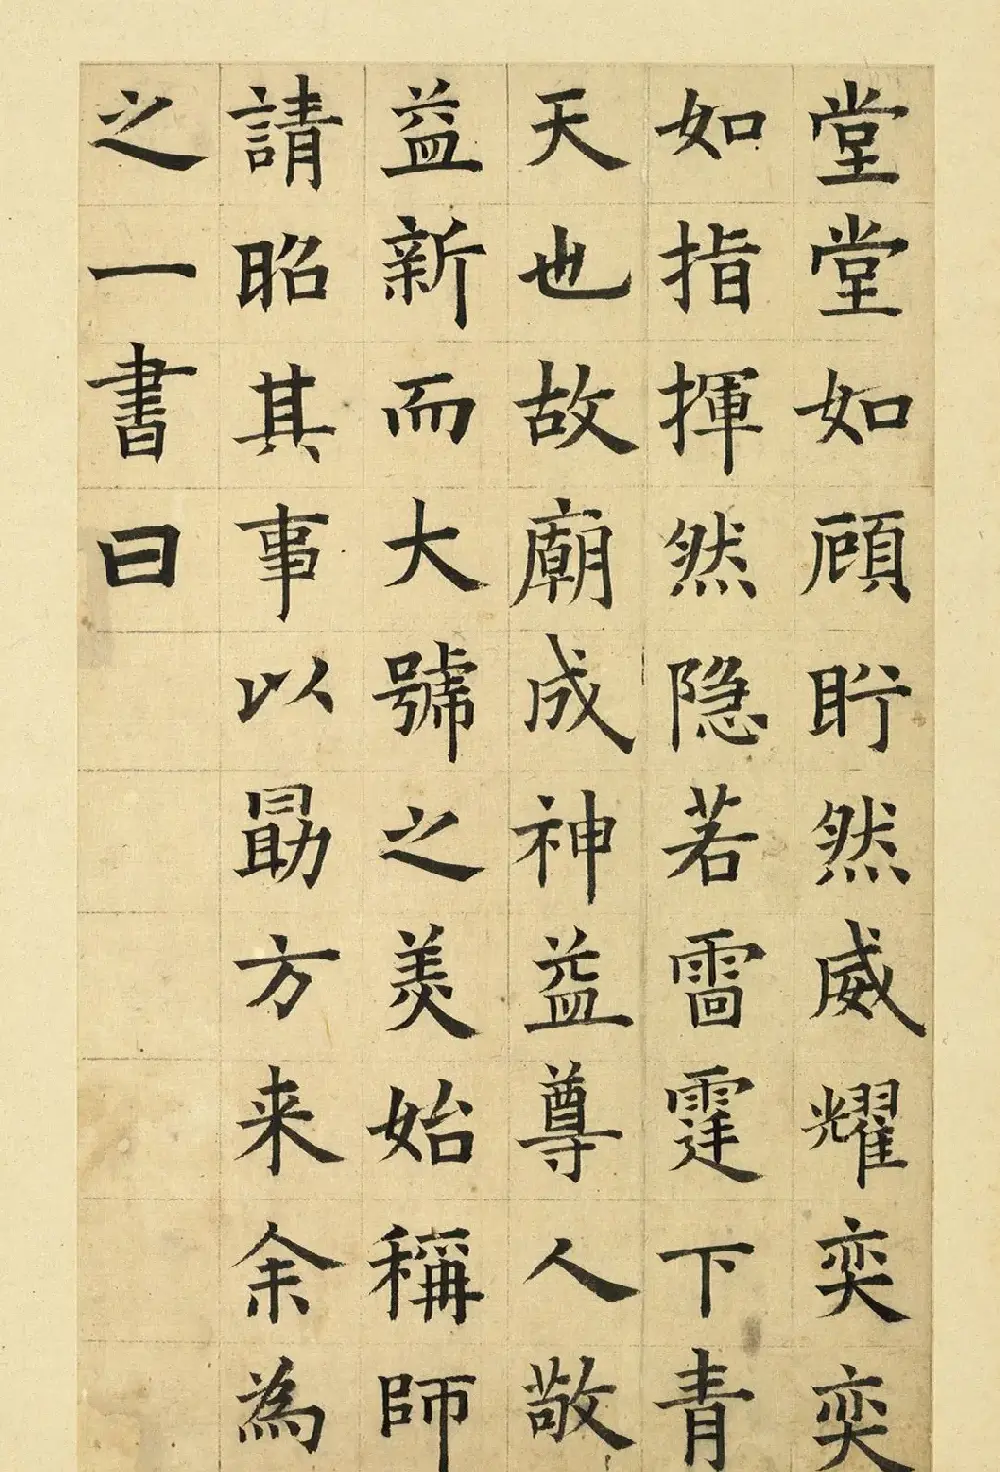 堂堂如顧盱然威耀奕奕
如指揮然隐若雷霆下青
天也故廟成神益尊人敬
益新而大號之美始稱師
請昭其事以勖方来余為
之一書曰